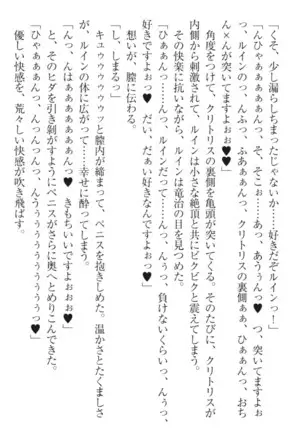 「くそ、少し漏らしちまったじゃないか……好きだぞルインっ！」
「んひゃぁぁぁぁっ♥　そ、そこぉ…あっ、あうぅんっ♥　つ、突いてますよぉ
っ、ルインの…っ、んふっ、ふあぁぁんっ、クリトリスの裏側ぁぁ、ひぁぁんっ、おち
ん×んが突いてますよぉっ♥♥」
　角度をつけて、クリトリスの裏側を亀頭が突いてくる。そのたびに、クリトリスが
内側から刺激されて、ルインは小さな絶頂と共にビクビクと震えてしまう。
　その快楽に抗いながら、ルインは竜治の目を見つめた。
「ひぁぁんっ……んっ、ルインだって……んっ、んぅっ、負けないくらいっ、んぅっ、
好きですよぉっ♥　だい、だぁい好きなんですよぉっ♥」
　想いが、膣に伝わる。
「し、しまるっ」
　キュゥゥゥゥゥッと膣内が締まって、ペニスを抱きしめた。温かさとたくましさ
が、ルインの体に広がって……幸せに酔ってしまう。
「んっ、んはぁぁぁぁぁぁんっ♥　きもちいいですよぉぉぉ♥」
　と、そのヒダを引き剥がすようにペニスがさらに奥へとめりこんできた。
「ひゃぁぁぁんっ、んうぅぅぅぅぅぅぅっ♥」
　優しい快感を、荒々しい快感が吹き飛ばす。